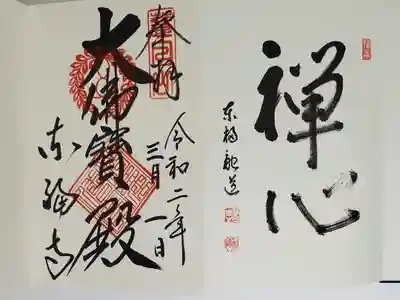 禅心
东福龍道
奉拝
令和二年
三月一日
大佛寳殿
东福寺